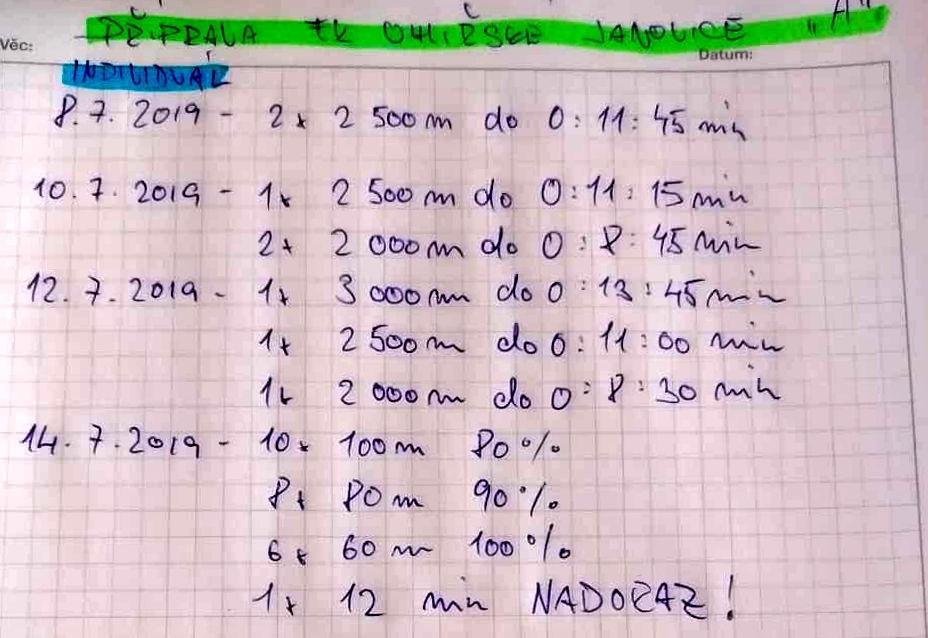 PŘÍPRAVA FK UHLÍŘSKÉ JANOVICE "A"
Věc:
Datum:
INDIVIDUÁL
8.7. 2019 - 2x 2 500 m do 0:11:45 min
10.7. 2019 - 1x 2 500 m do 0:11:15 min
2x 2 000 m do 0:8:45 min
12.7.2019 - 1x 3 000 m do 0:13:45 min
1x 2 500 m do 0:11:00 min
1x 2 000 m do 0:8:30 min
14.7.2019 - 10x 100 m 80 %
8x 80 m 90 %
6x 60 m 100 %
1x 12 min NADORAZ!